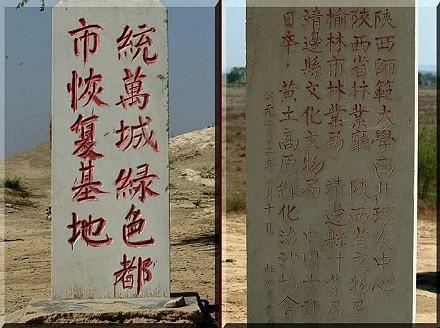 統萬城綠色都
市恢复基地
陝西師範大學西北环发中心
陝西省林業廳 陝西省文物局
榆林市林業局 靖邊縣林业局
靖邊縣文化文物局 中国十邦
日本·黄土高原绿化